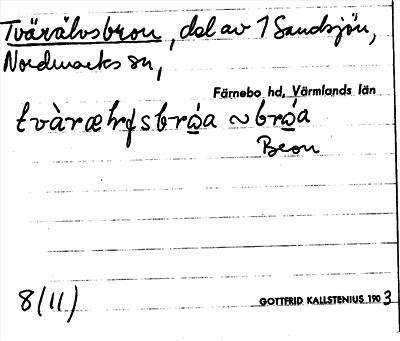 Tvärälvsbron, del av 1 Sandsjön,
Nordmarks sn,
Färnebo hd, Värmlands län
tvàrælvsbróa ~ bróa
Bron
8 (11)
GOTTFRID KALLSTENIUS 1903